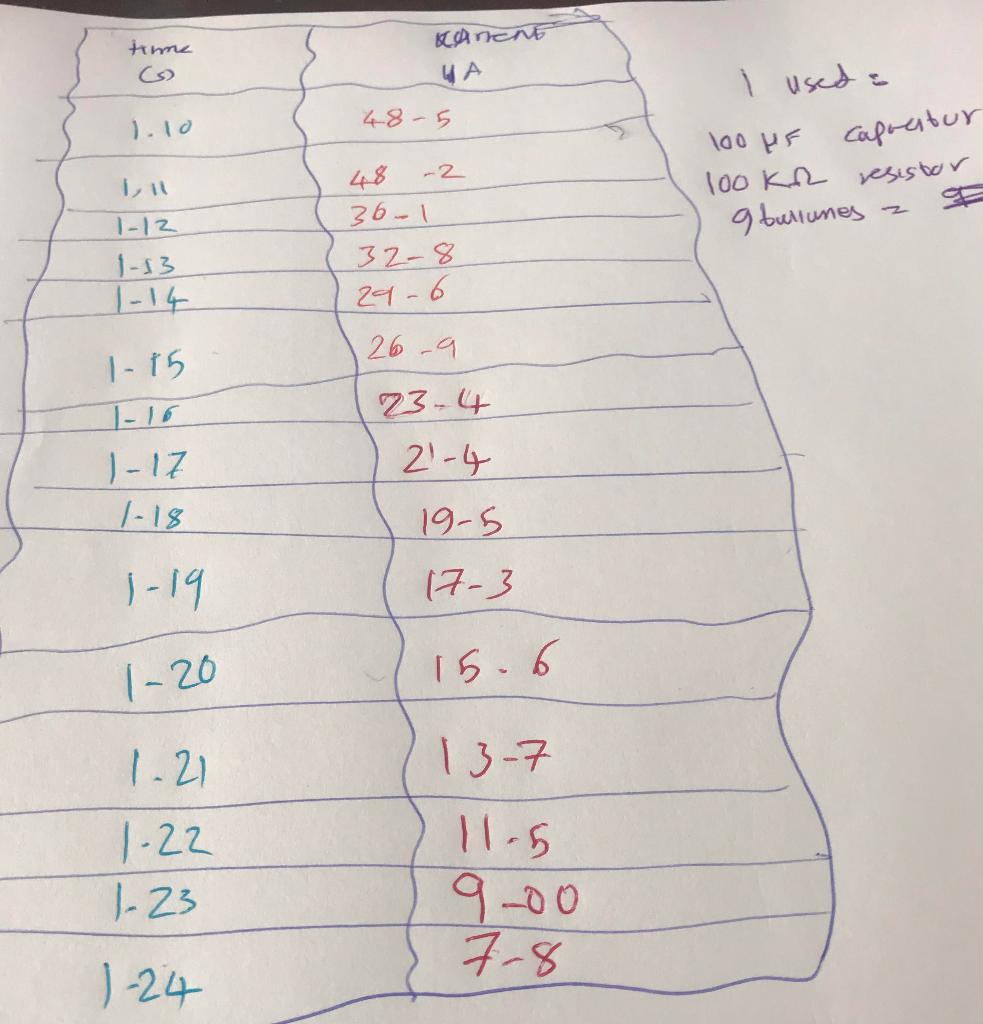 time
(s)
µA
1.10 48-5
1.11 48-2
1-12 36-1
1-13 32-8
1-14 29-6
1-15 26-9
1-16 23-4
1-17 21-4
1-18 19-5
1-19 17-3
1-20 15-6
1.21 13-7
1-22 11-5
1-23 9-00
1-24 7-8
I used =
100 µF capacitor
100 KΩ resistor